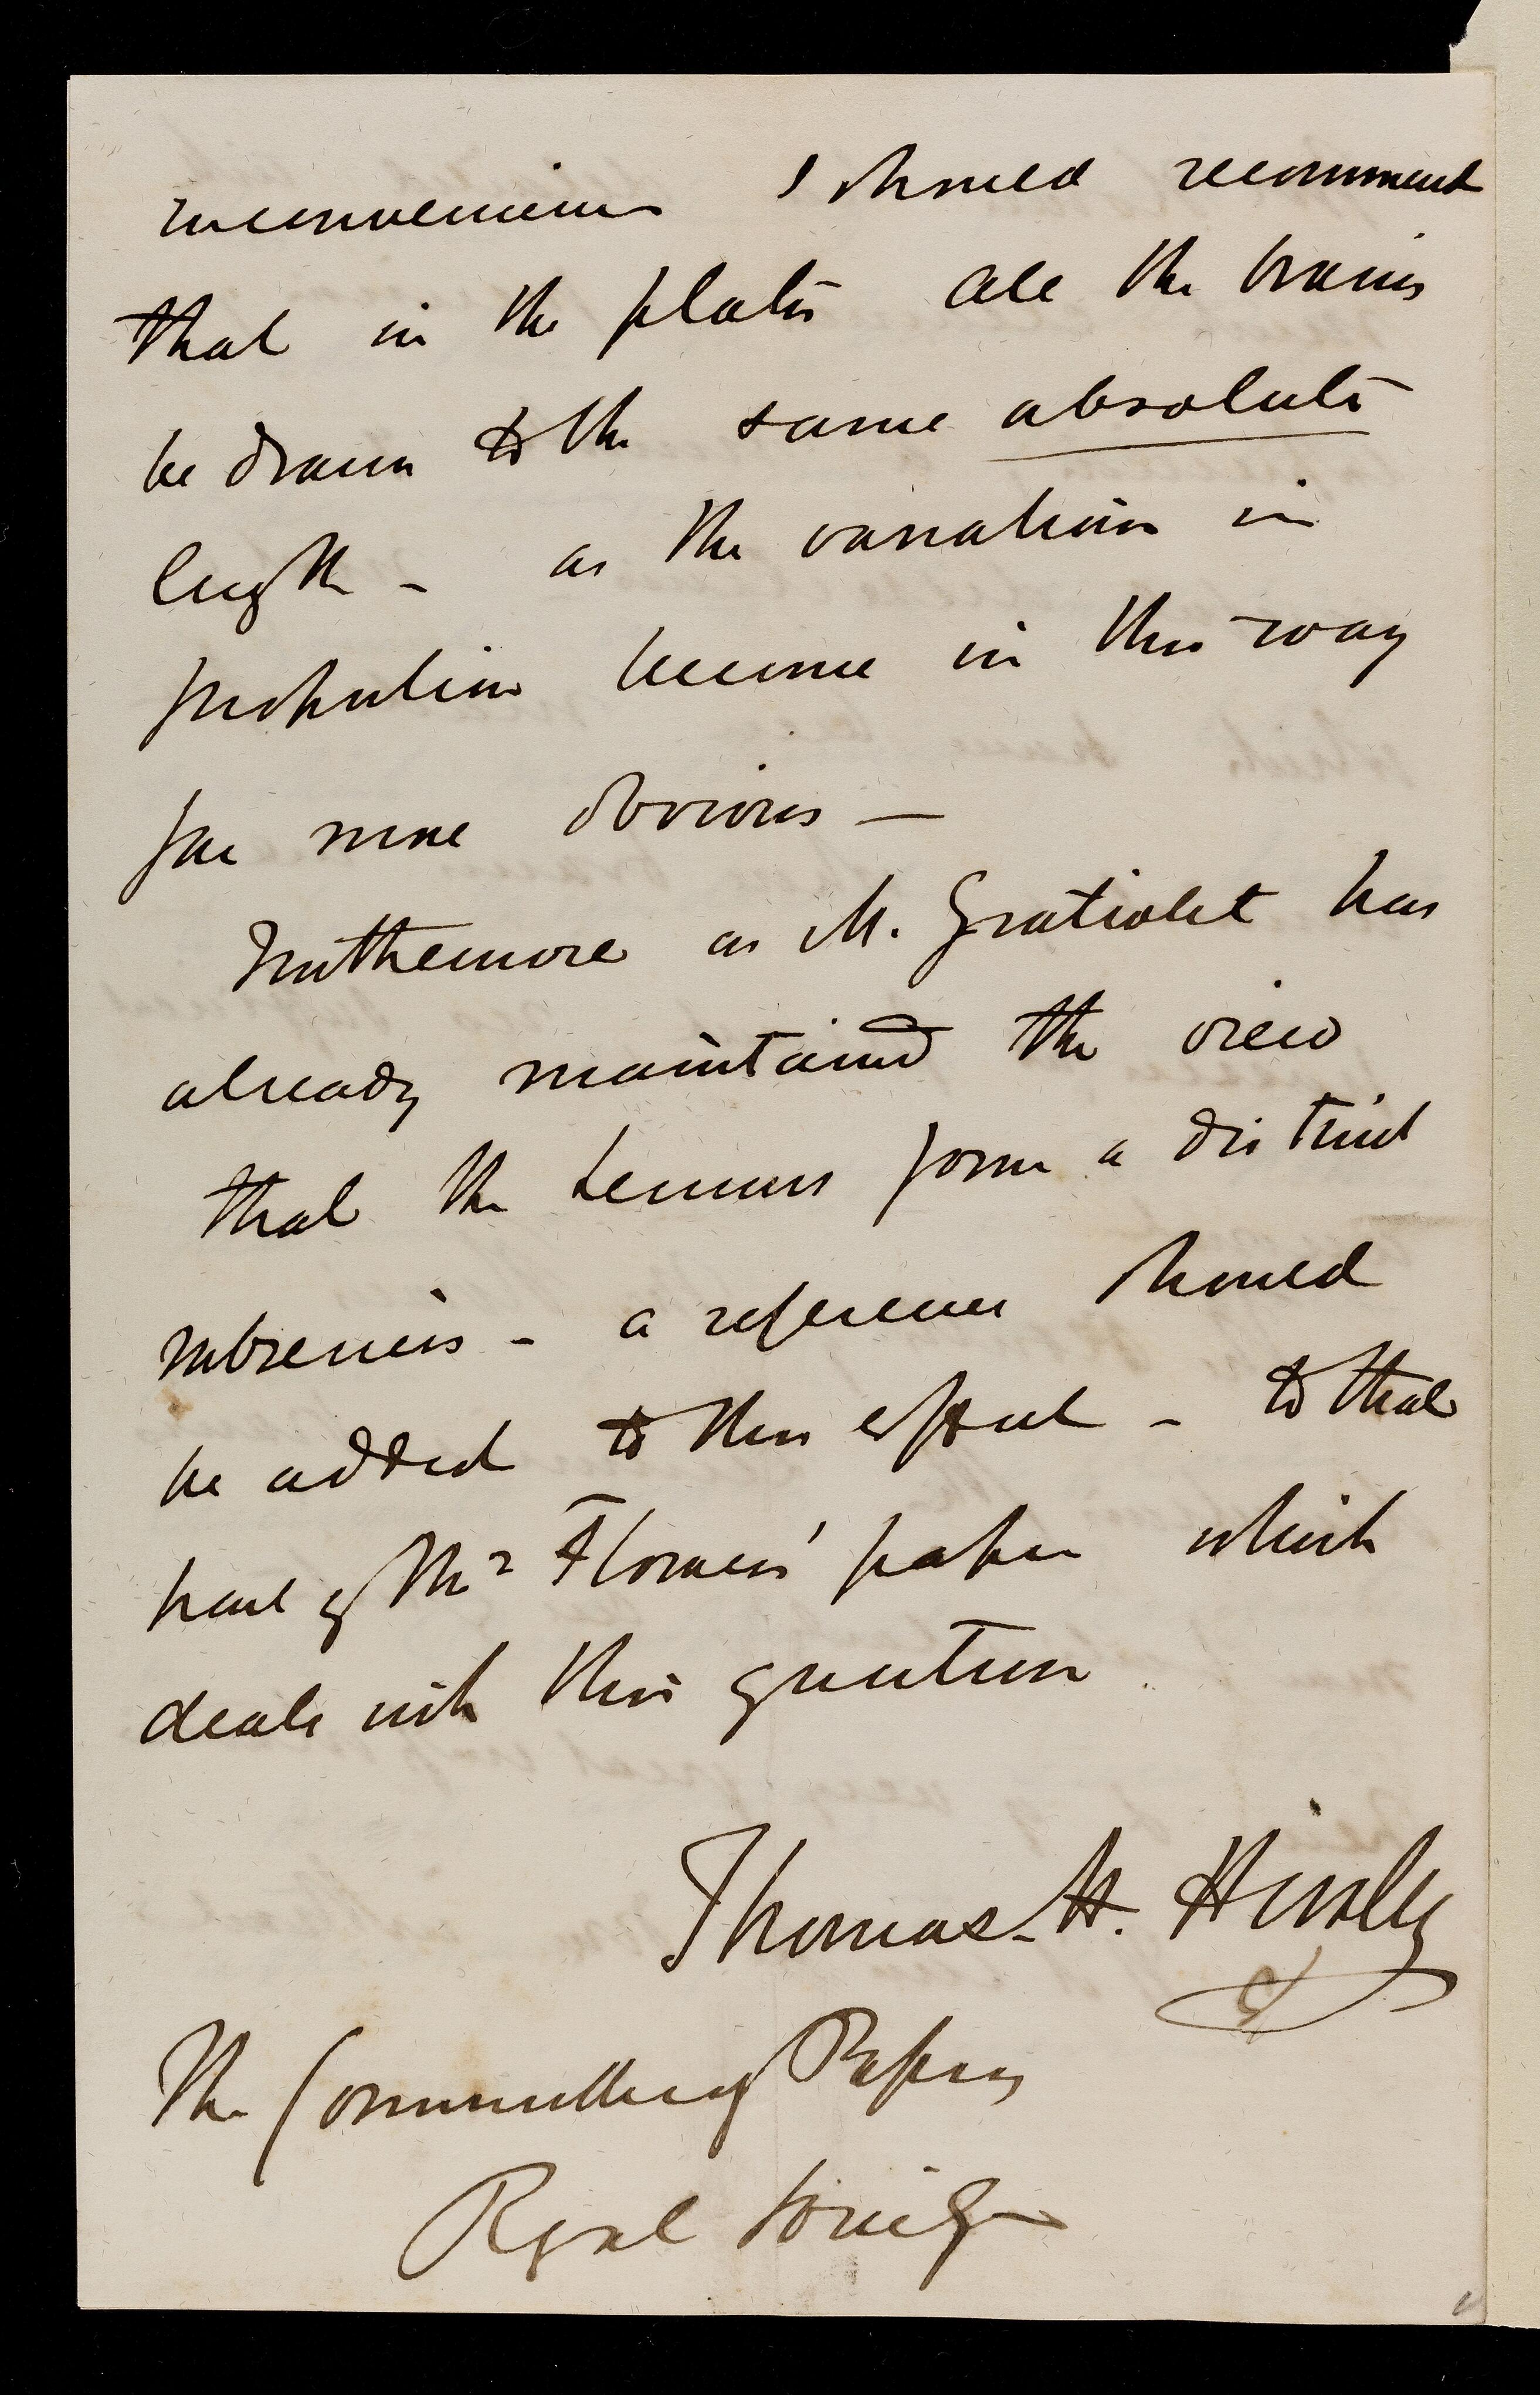 inconvenience I should recommend
that in the plates all the brains
be drawn to the same absolute
length - as the variations in
proportion become in this way
far more obvious —
Furthermore as M. Gratiolet has
already maintained the view
that the Lemurs form a distinct
subseries - a reference should
be added to this effect - to that
part of Mr Flower's paper which
deals with this question
Thomas. H. Huxley
The Committee of Papers
Royal Society